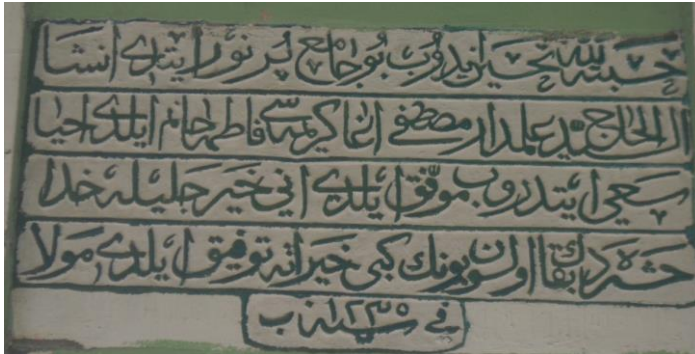 حسبة لله تحسين ايدروب بو جامع پر نورا يتدى انشا
الحاج سيد علمدار مصطفى اغا كريمه سى فاطمه خانم ايلدى احيا
سعى ايتدروب موفق ايلدى انى خير جليله خدا
اولسون بونك كبى خيراته توفيق ايلدى مولا
فى سنة ١٢٣٥ ب